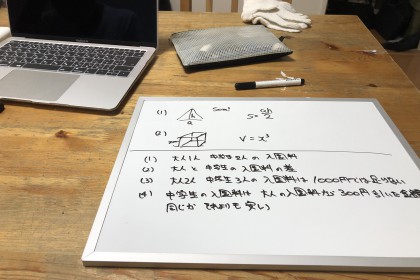 (1) h a 5cm² S = ah/2
(2) V = x³
(1) 大人1人 中学生2人の入園料
(2) 大人と中学生の入園料の差
(3) 大人2人 中学生3人の入園料は1000円では足りない
(4) 中学生の入園料は 大人の入園料から300円引いた金額
同じか それよりも安い